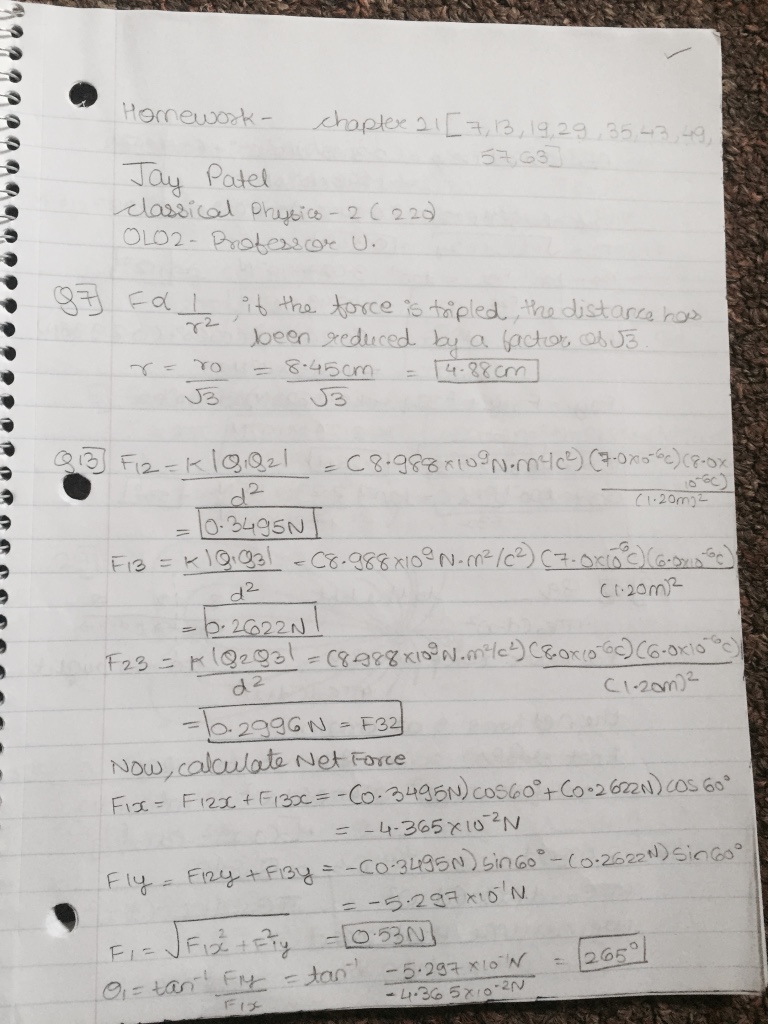 Homework - chapter 21 [7,13,19,29,35,43,49,
57,63]
Jay Patel
classical Physics - 2 (220)
OL02 - Professor U.
Q7] F α 1/r², if the force is tripled, the distance has
been reduced by a factor of √3.
r = r0/√3 = 8.45cm/√3 = 4.88cm
Q13] F12 = K|Q1Q2|/d² = (8.988×10⁹N.m²/c²) (7.0×10⁻⁶c)(8.0×10⁻⁶c)/(1.20m)²
= 0.3495N
F13 = K|Q1Q3|/d² = (8.988×10⁹N.m²/c²) (7.0×10⁻⁶c)(6.0×10⁻⁶c)/(1.20m)²
= 0.2622N
F23 = K|Q2Q3|/d² = (8.988×10⁹N.m²/c²) (8.0×10⁻⁶c)(6.0×10⁻⁶c)/(1.20m)²
= 0.2996N = F32
Now, calculate Net Force
F1x = F12x + F13x = -(0.3495N)cos60° + (0.2622N)cos60°
= -4.365×10⁻²N
F1y = F12y + F13y = -(0.3495N)sin60° - (0.2622N)sin60°
= -5.297×10⁻¹N.
F1 = √F1x² + F1y² = 0.53N
θ1 = tan⁻¹ F1y/F1x = tan⁻¹ -5.297×10⁻¹N/-4.365×10⁻²N = 265°